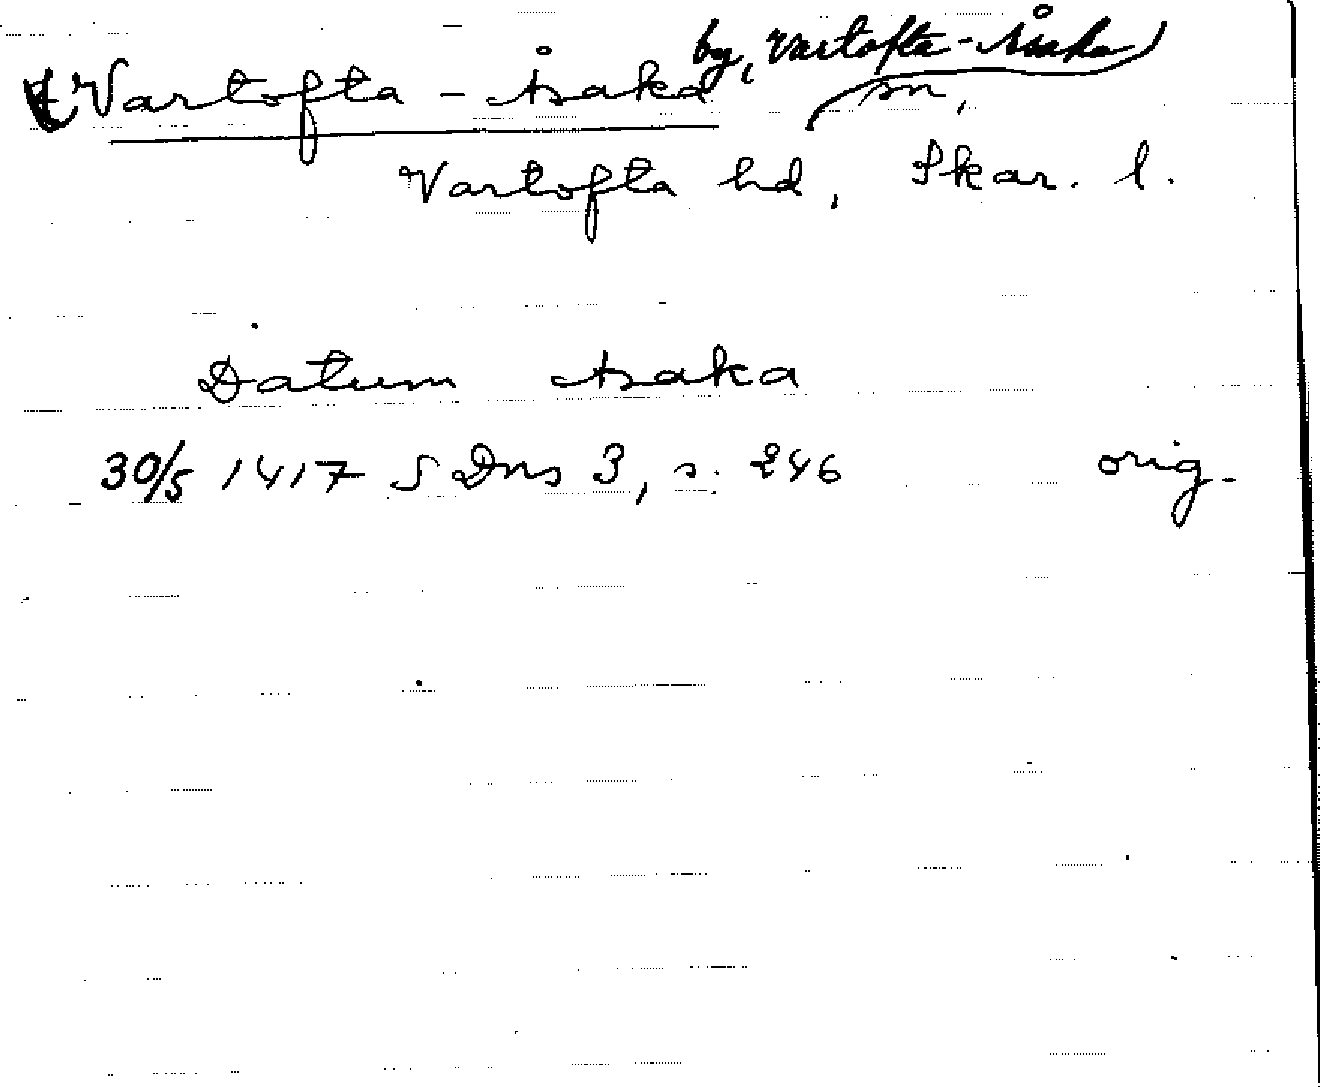 Vartofta-Åsaka by, Vartofta-Åsaka sn,
Vartofta hd, Skar. l.
Datum Asaka
30/5 1417 SDns 3, s. 246 orig.